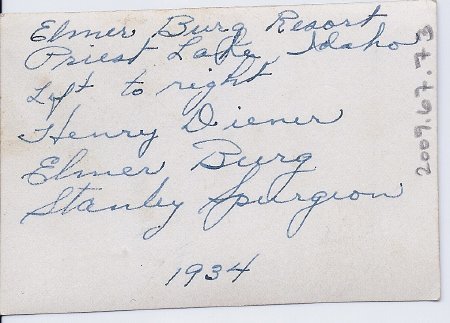 Elmer Burg Resort
Priest Lake, Idaho
Left to right
Henry Diener
Elmer Burg
Stanley Spurgeon
1934
2009.67.73